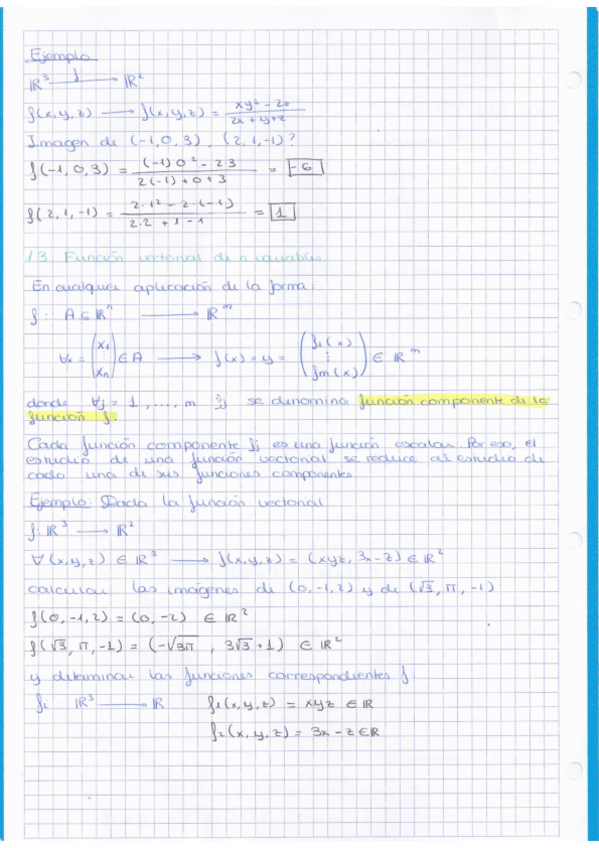 Ejemplo
ℝ³ —f→ ℝ²
f(x,y,z) → f(x,y,z) = (xy² - 2z)/(2x + y + z)
Imagen de (-1,0,3), (2,1,-1)?
f(-1,0,3) = ((-1)0² - 2 3)/(2(-1)+0+3) = -6
f(2,1,-1) = (2·1² - 2·(-1))/(2·2 + 1 - 1) = 1
1.3. Función vectorial de n variables.
En cualquier aplicación de la forma:
f: A ⊆ ℝⁿ → ℝᵐ
∀x = (x₁ ⋮ xₙ) ∈ A → f(x) = y = (f₁(x) ⋮ fm(x)) ∈ ℝᵐ
donde ∀j = 1, ..., m fj se denomina función componente de la
función f.
Cada función componente fj es una función escalar. Por eso, el
estudio de una función vectorial se reduce al estudio de
cada una de sus funciones componentes.
Ejemplo: Dada la función vectorial
f: ℝ³ → ℝ²
∀(x,y,z) ∈ ℝ³ → f(x,y,z) = (xyz, 3x-z) ∈ ℝ²
calcular las imágenes de (0,-1,2) y de (√3, π, -1)
f(0,-1,2) = (0,-2) ∈ ℝ²
f(√3, π, -1) = (-√3π, 3√3+1) ∈ ℝ²
y determinar las funciones correspondientes f.
fi: ℝ³ → ℝ f₁(x,y,z) = xyz ∈ ℝ
f₂(x,y,z) = 3x - z ∈ ℝ